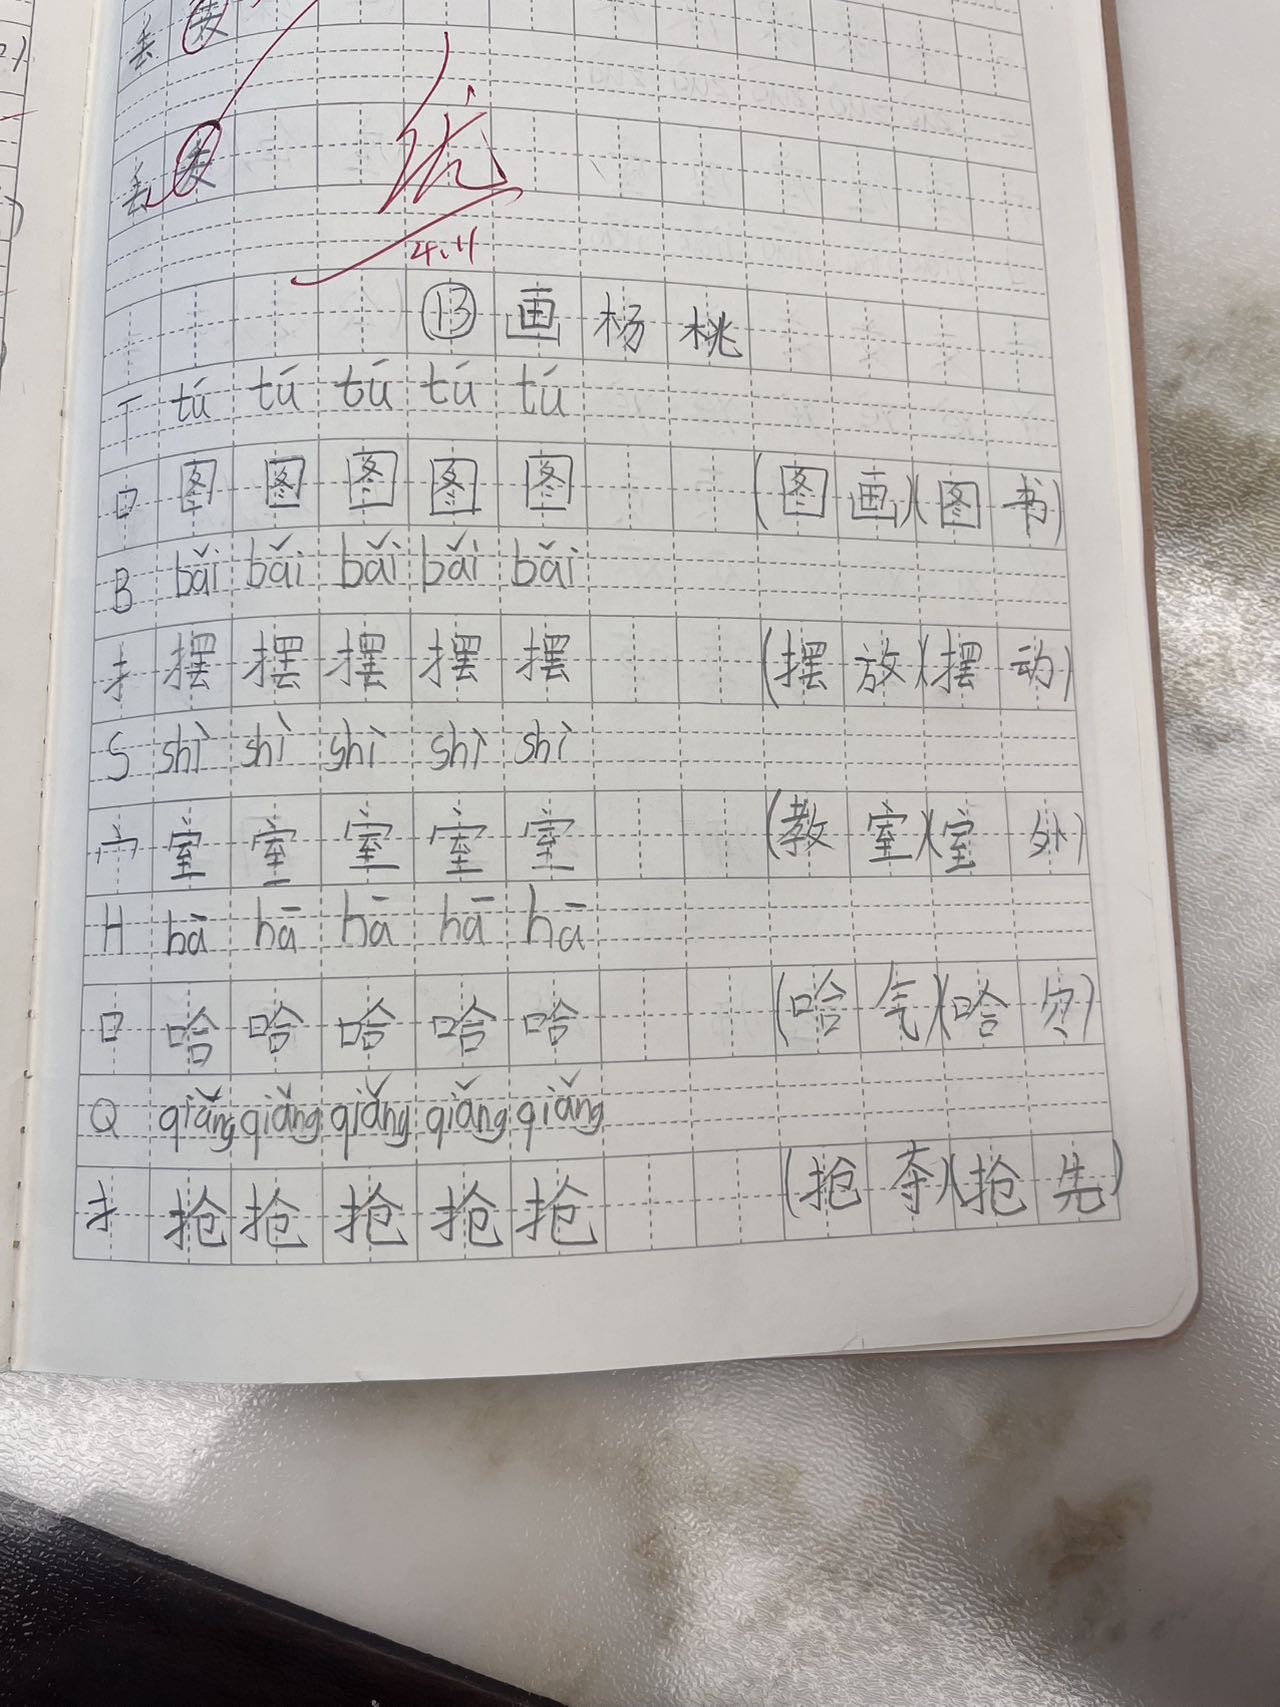 去
去
优
4.11
⑬画杨桃
T tú tú tú tú tú
口 图 图 图 图 图 (图画)(图书)
B bǎi bǎi bǎi bǎi bǎi
扌 摆 摆 摆 摆 摆 (摆放)(摆动)
S shì shì shì shì shì
宀 室 室 室 室 室 (教室)(室外)
H hā hā hā hā hā
口 哈 哈 哈 哈 哈 (哈气)(哈欠)
Q qiǎng qiǎng qiǎng qiǎng qiǎng
扌 抢 抢 抢 抢 抢 (抢夺)(抢先)